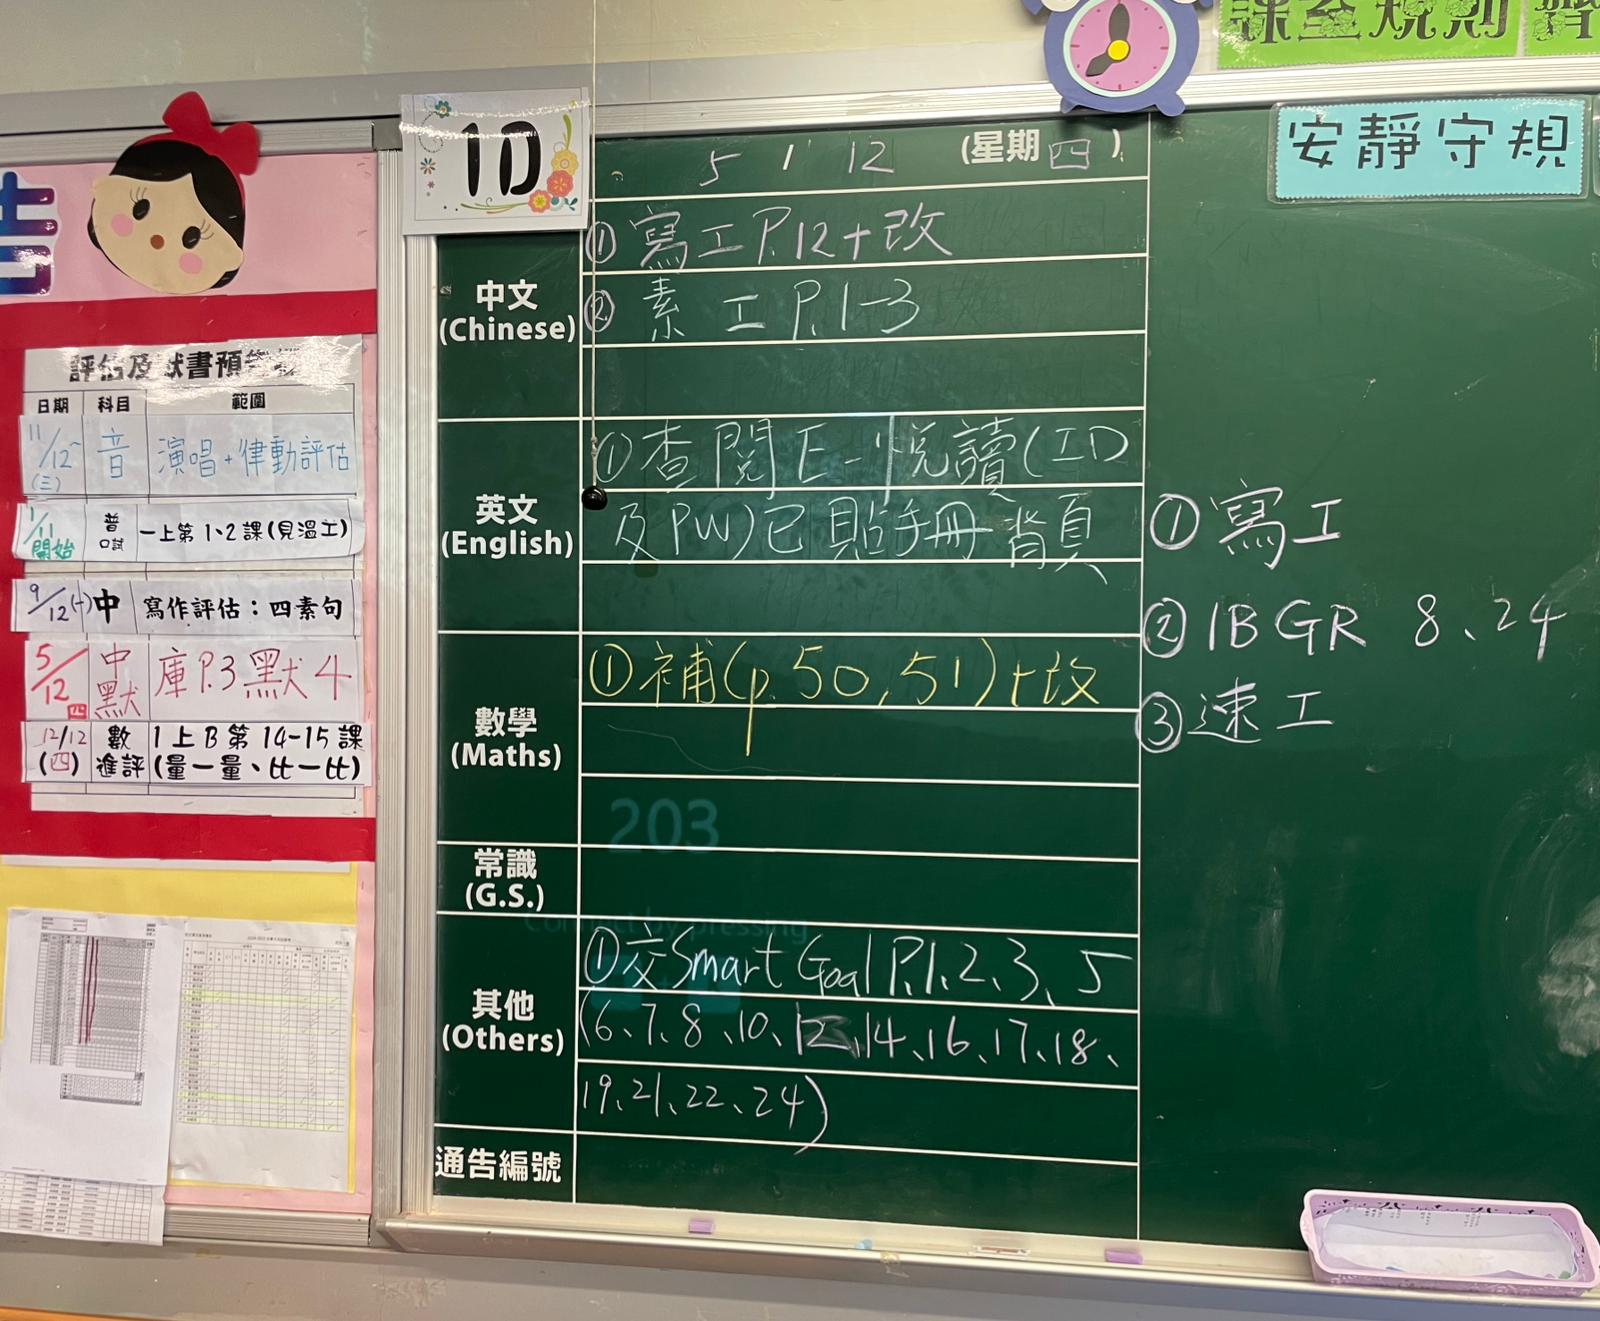 課室規則
1D
5 / 12 (星期四)
安靜守規
中文
(Chinese)
① 寫工P.12+改
② 素工P.1-3
英文
(English)
①查閱E-悅讀(ID
及PW)已貼手冊背頁
數學
(Maths)
①補(p.50,51)+改
203
常識
(G.S.)
Connect by pressing
其他
(Others)
①交Smart Goal P.1、2、3、5
(6、7、8、10、12、14、16、17、18、
19、21、22、24)
通告編號
① 寫工
② 1B GR 8、24
③ 速工
評估及默書預告
日期 科目 範圍
11/12~(三) 音 演唱+律動評估
1/11開始 普口試 一上第1、2課(見溫工)
9/12(一) 中 寫作評估：四素句
5/12四 中默 庫P.3默4
12/12(四) 數進評 1上B第14-15課
(量一量、比一比)